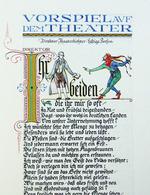 VORSPIEL AVF
DEM THEATER
Direktor Theaterdichter Lustige Person
DIREKTOR
Ihr
beiden
die ihr mir so oft
In Not und Trübsal beigestanden
Sagt was ihr wohl in deutschen Landen
Von unsrer Unternehmung hofft?
Ich wünschte sehr der Menge zu behagen
Besonders weil sie lebt und leben läßt
Die Pfosten sind die Bretter aufgeschlagen
Und jedermann erwartet sich ein Fest
Sie sitzen schon mit hohen Augenbraunen
Gelassen da und möchten gern erstaunen
Ich weiß wie man den Geist des Volks versöhnt
Doch so verlegen bin ich nie gewesen
Zwar sind sie an das Beste nicht gewöhnt
Allein sie haben schrecklich viel gelesen
Wie machen wir's daß alles frisch und neu
Und mit Bedeutung auch gefällig sei